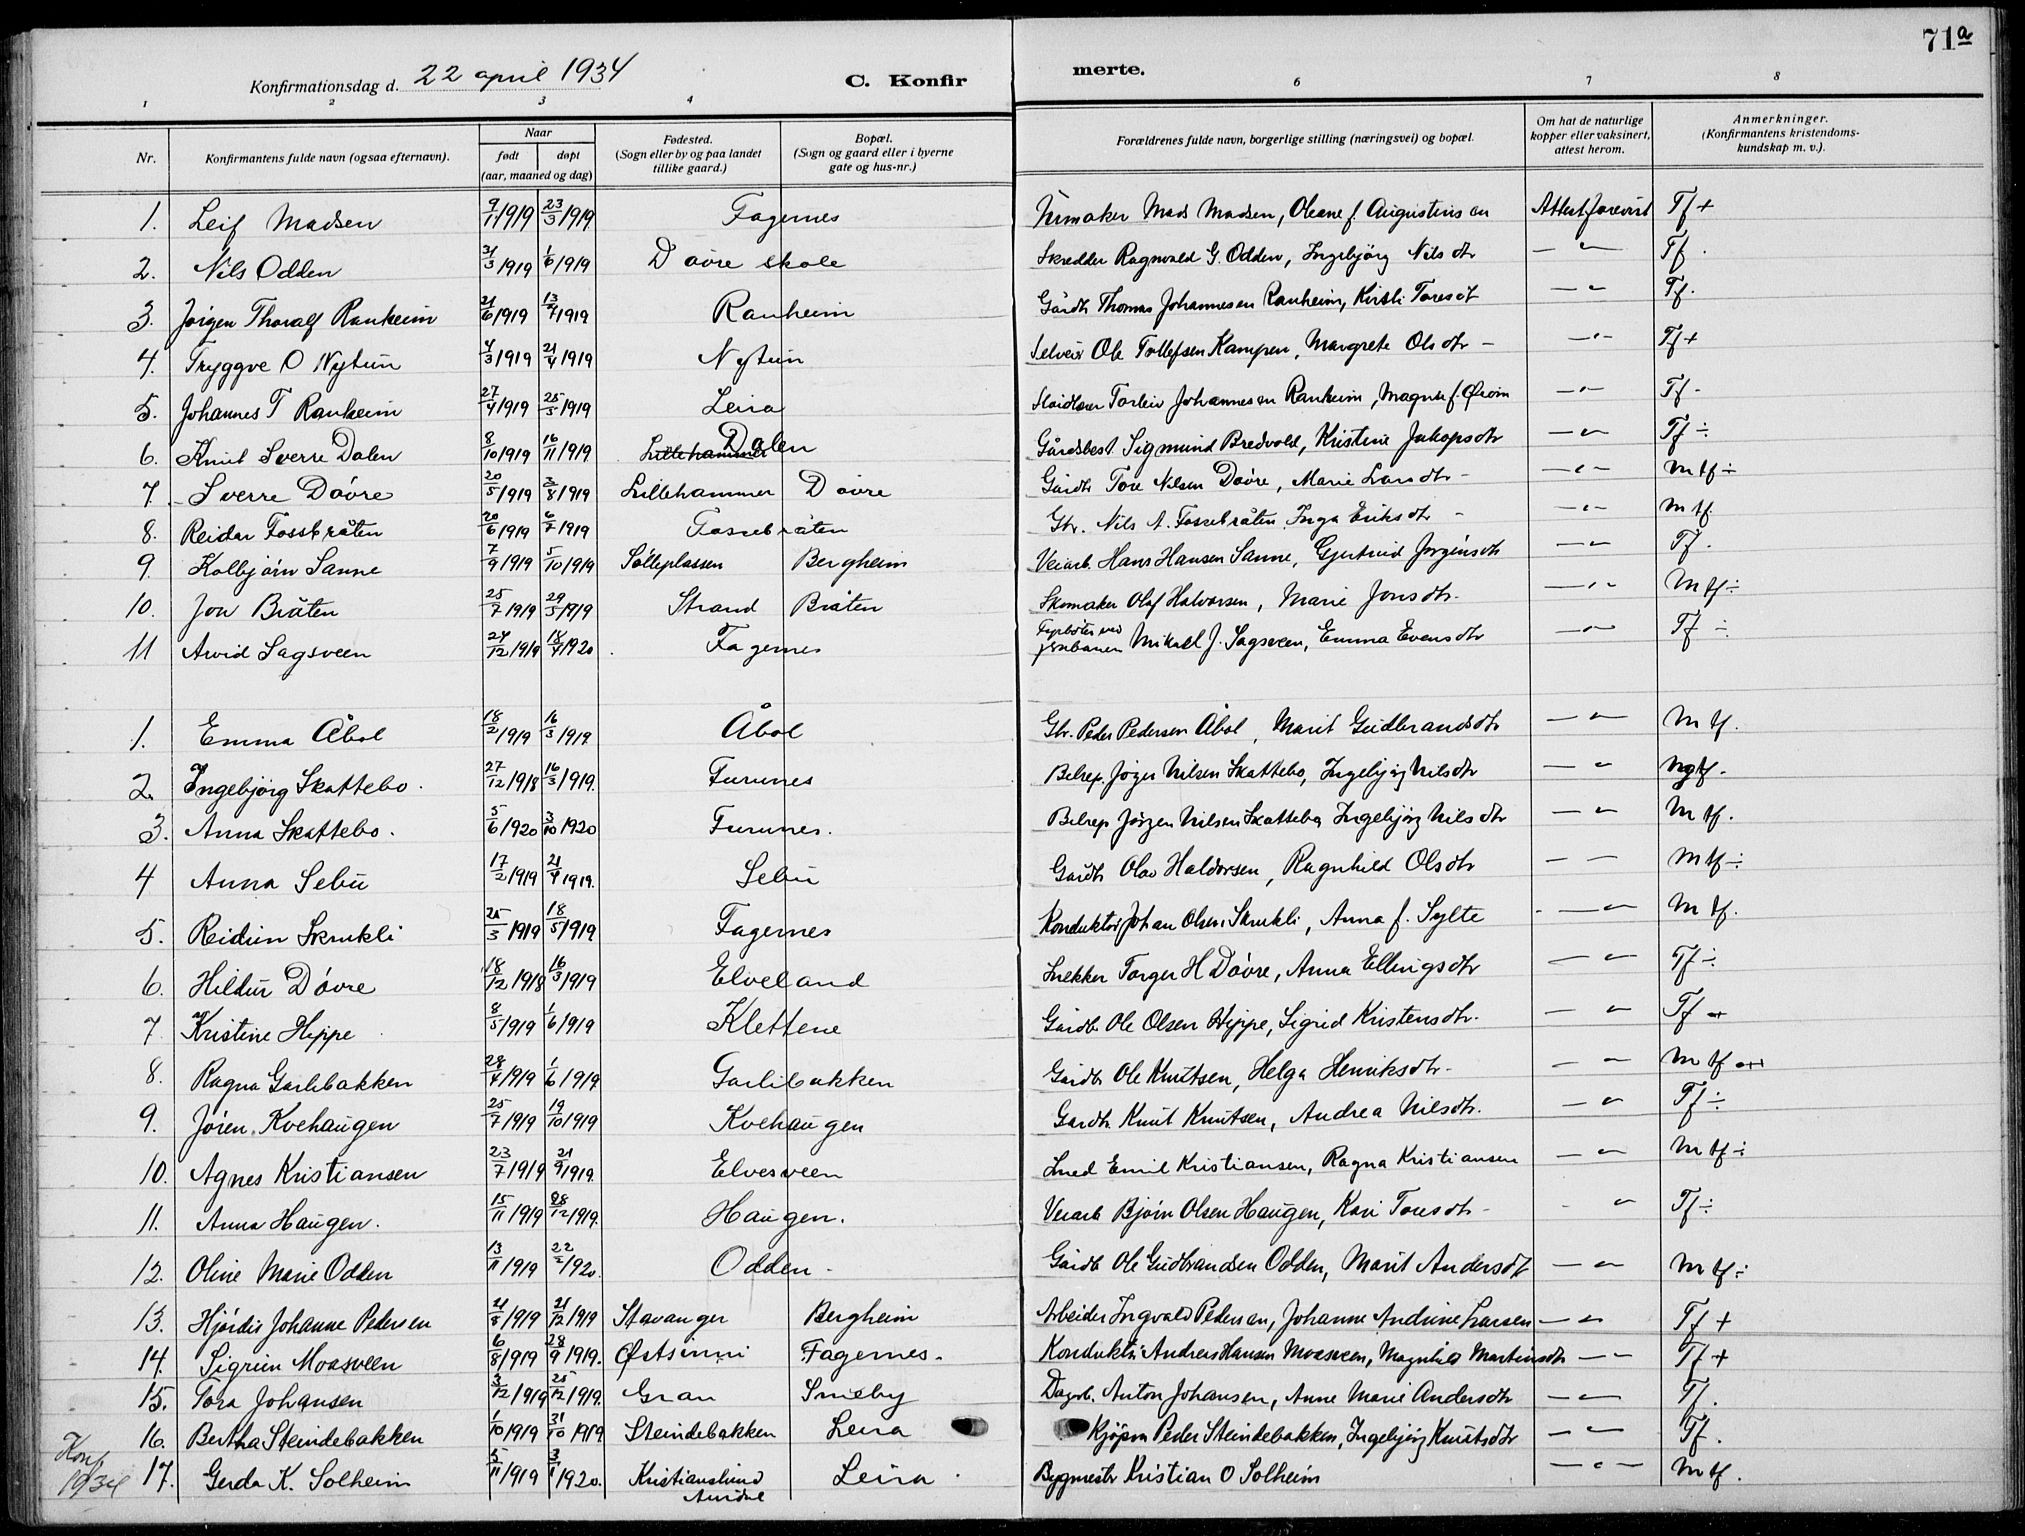 71a
Konfirmationsdag d. 22 april 1934 C. Konfir merte.
1 2 3 4 6 7 8
Nr. Konfirmantens fulde navn (ogsaa efternavn). Naar født døpt (aar, maaned og dag) Fødested. (Sogn eller by og paa landet tillike gaard.) Bopæl. (Sogn og gaard eller i byerne gate og hus-nr.) Forældrenes fulde navn, borgerlige stilling (næringsvei) og bopæl. Om hat de naturlige kopper eller vaksinert, attest herom. Anmerkninger. (Konfirmantens kristendomskundskap m. v.).
1. Leif Madsen 9/1 1919 23/3 1919 Fagernes Urmaker Mads Madsen, Oleane f. Augustinsen Attest forevist Tf +
2. Nils Odden 31/3 1919 1/6 1919 Døvre skole Skredder Ragnvald G. Odden, Ingebjørg Nilsdtr — " — Tf.
3. Jørgen Thoralf Ranheim 21/6 1919 13/7 1919 Ranheim Gårdbr Thomas Johannesen Ranheim, Kirsti Toresdt — " — Tf.
4. Tryggve O Nytun 4/3 1919 21/4 1919 Nytun Selveier Ole Tollefsen Kampen, Margrete Olsdtr — — " — Tf +
5. Johannes T Ranheim 27/4 1919 25/5 1919 Leira Torleiv Johannesen Ranheim, Magna f. Øiom — " — Tf -
6. Knut Sverre Dalen 8/10 1919 16/11 1919 Lillehammer Dalen Gårdsbest. Sigmund Bredvold, Kristine Jakopsdtr — " — Tf ÷
7. Sverre Døvre 20/5 1919 3/8 1919 Lillehammer Døvre Gårdbr Tore Nilsen Døvre, Marie Larsdtr — — " — Mtf ÷
8. Reidar Fossbråten 20/6 1919 6/7 1919 Fossebråten Gbr. Nils A. Fossebråten Inga Eriksdtr — — " — Mtf
9. Kolbjørn Sanne 7/9 1919 5/10 1919 Sølleplassen Bergheim Veiarb. Hans Hansen Sanne, Gjertrud Jørgensdtr — " — Tf.
10. Jon Bråten 25/7 1919 29/5 1919 Strand Bråten Skomaker Olaf Halvorsen, Marie Jonsdtr. — " — Mtf ÷
11 Arvid Sagsveen 24/12 1919 18/4 1920 Fagernes Fyrbøter ved jernbanen Mikael J. Sagsveen, Emma Evensdtr — " — Tf ÷
1. Emma Åbol 18/2 1919 16/3 1919 Åbol Gbr. Peder Pedersen Åbol, Marit Gudbrandsdtr — " — Mtf.
2. Ingebjørg Skattebo. 27/12 1918 16/3 1919. Furunes Belrep. Jørgen Nilsen Skattebo, Ingebjørg Nilsdtr — " Mgtf.
3. Anna Skattebo. 5/6 1920 3/10 1920 Furunes. Belrep Jørgen Nilsen Skattebo, Ingebjørg Nilsdtr — " Mtf.
4 Anna Sebu 17/2 1919 21/4 1919. Sebu Gårdbr Olav Haldorsen, Ragnhild Olsdtr — — Mtf ÷
5. Reidun Skrukli 25/3 1919 18/5 1919 Fagernes Konduktør Johan Olsen Skrukli, Anna f. Sylte — " Mtf.
6. Hildur Døvre 18/12 1918 16/3 1919 Elveland Snekker Torger H Døvre, Anna Ellingsdtr — " Tf ÷
7 Kristine Hippe 8/5 1919 1/6 1919 Klettene Gårdb. Ole Olsen Hippe, Sigrid Kristensdtr. — " Tf
8. Ragna Garlibakken 28/4 1919 1/6 1919 Garlibakken Gårdbr Ole Knutsen, Helga Henriksdtr. — " Mtf
9. Jøren Kvehaugen 25/7 1919 19/10 1919 Kvehaugen Gardbr. Knut Knutsen, Andrea Nilsdtr. — " Tf ÷
10. Agnes Kristiansen 23/7 1919 21/9 1919. Elvesveen Smed Emil Kristiansen, Ragna Kristiansen — " Mtf ÷
11. Anna Haugen. 15/11 1919 28/12 1919. Haugen. Veiarb Bjørn Olsen Haugen, Kari Toresdtr — - " Tf ÷
12. Oline Marie Odden 13/11 1919 22/2 1920. Odden - Gårdb Ole Gudbrandsen Odden, Marit Andersdtr — " Mtf ÷
13. Hjørdis Johanne Pedersen 21/8 1919 21/12 1919 Stavanger Bergheim Arbeider Ingvald Pedersen, Johanne Andrine Larsen — " Tf +
14. Sigrun Moasveen 6/8 1919 28/9 1919. Østsinni Fagernes. Konduktør Andreas Hansen Moasveen, Magnhild Martinsdtr — " Tf +
15. Tora Johansen 3/12 1919 25/12 1919. Gran Snieby Dagarb. Anton Johansen, Anne Marie Andersdtr — " Tf.
16. Bertha Steindebakken 1/10 1919 31/10 1919 Steindebakken Leira Kjøpm Peder Steindebakken, Ingebjørg Knutsdtr — " Tf.
Konf 1934 17. Gerda K. Solheim 5/11 1919 3/1 1920. Kristiansund Leira. Bygmestr Kristian O Solheim — " — Mtf.